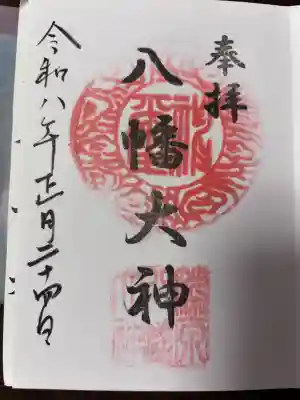 奉拝
八幡大神
令和八年正月二十四日